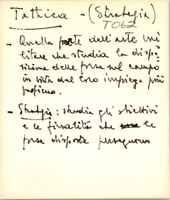 Tattica - (Strategia)
TO62
- Quella parte dell'arte mi
litare che studia la dispo
sizione delle forze sul campo
in vista del loro impiego più
proficuo.
- Strategia: studia gli obiettivi
e le finalità che le
forze disposte perseguono